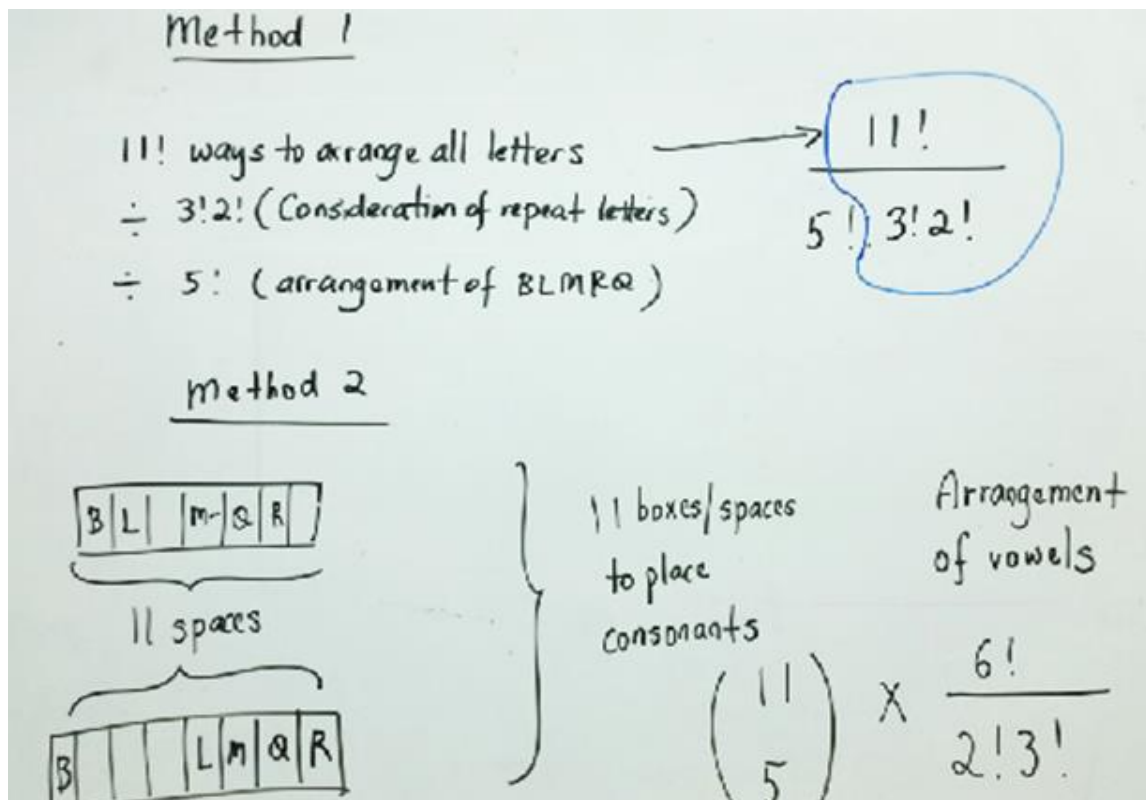 Method 1
11! ways to arrange all letters
÷ 3!2! (Consideration of repeat letters)
÷ 5! (arrangement of BLMRQ)
11!
5! 3!2!
Method 2
B L M Q R
11 spaces
B L M Q R
11 boxes/spaces
to place
consonants
(11
5)
X
Arrangement
of vowels
6!
2!3!